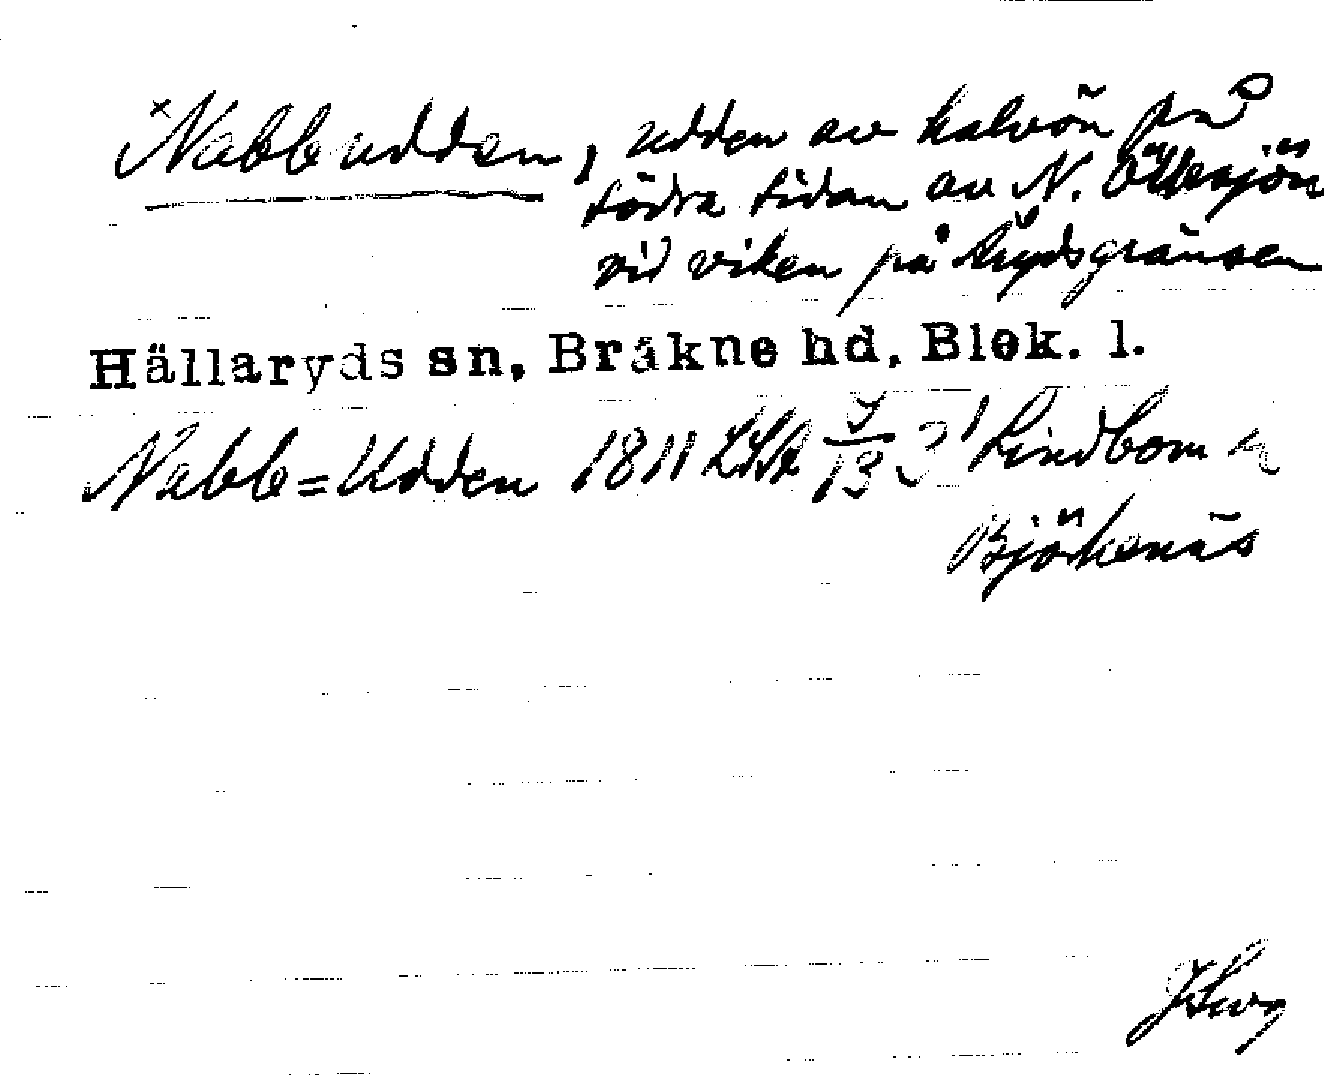 ×Nabbudden, udden av halvön på
södra sidan av N. Öllesjön
vid viken på Rydsgränsen
Hällaryds sn, Bräkne hd, Blek. l.
Nabb=Udden 1811 LSA 3' Lindbom
Björkenäs